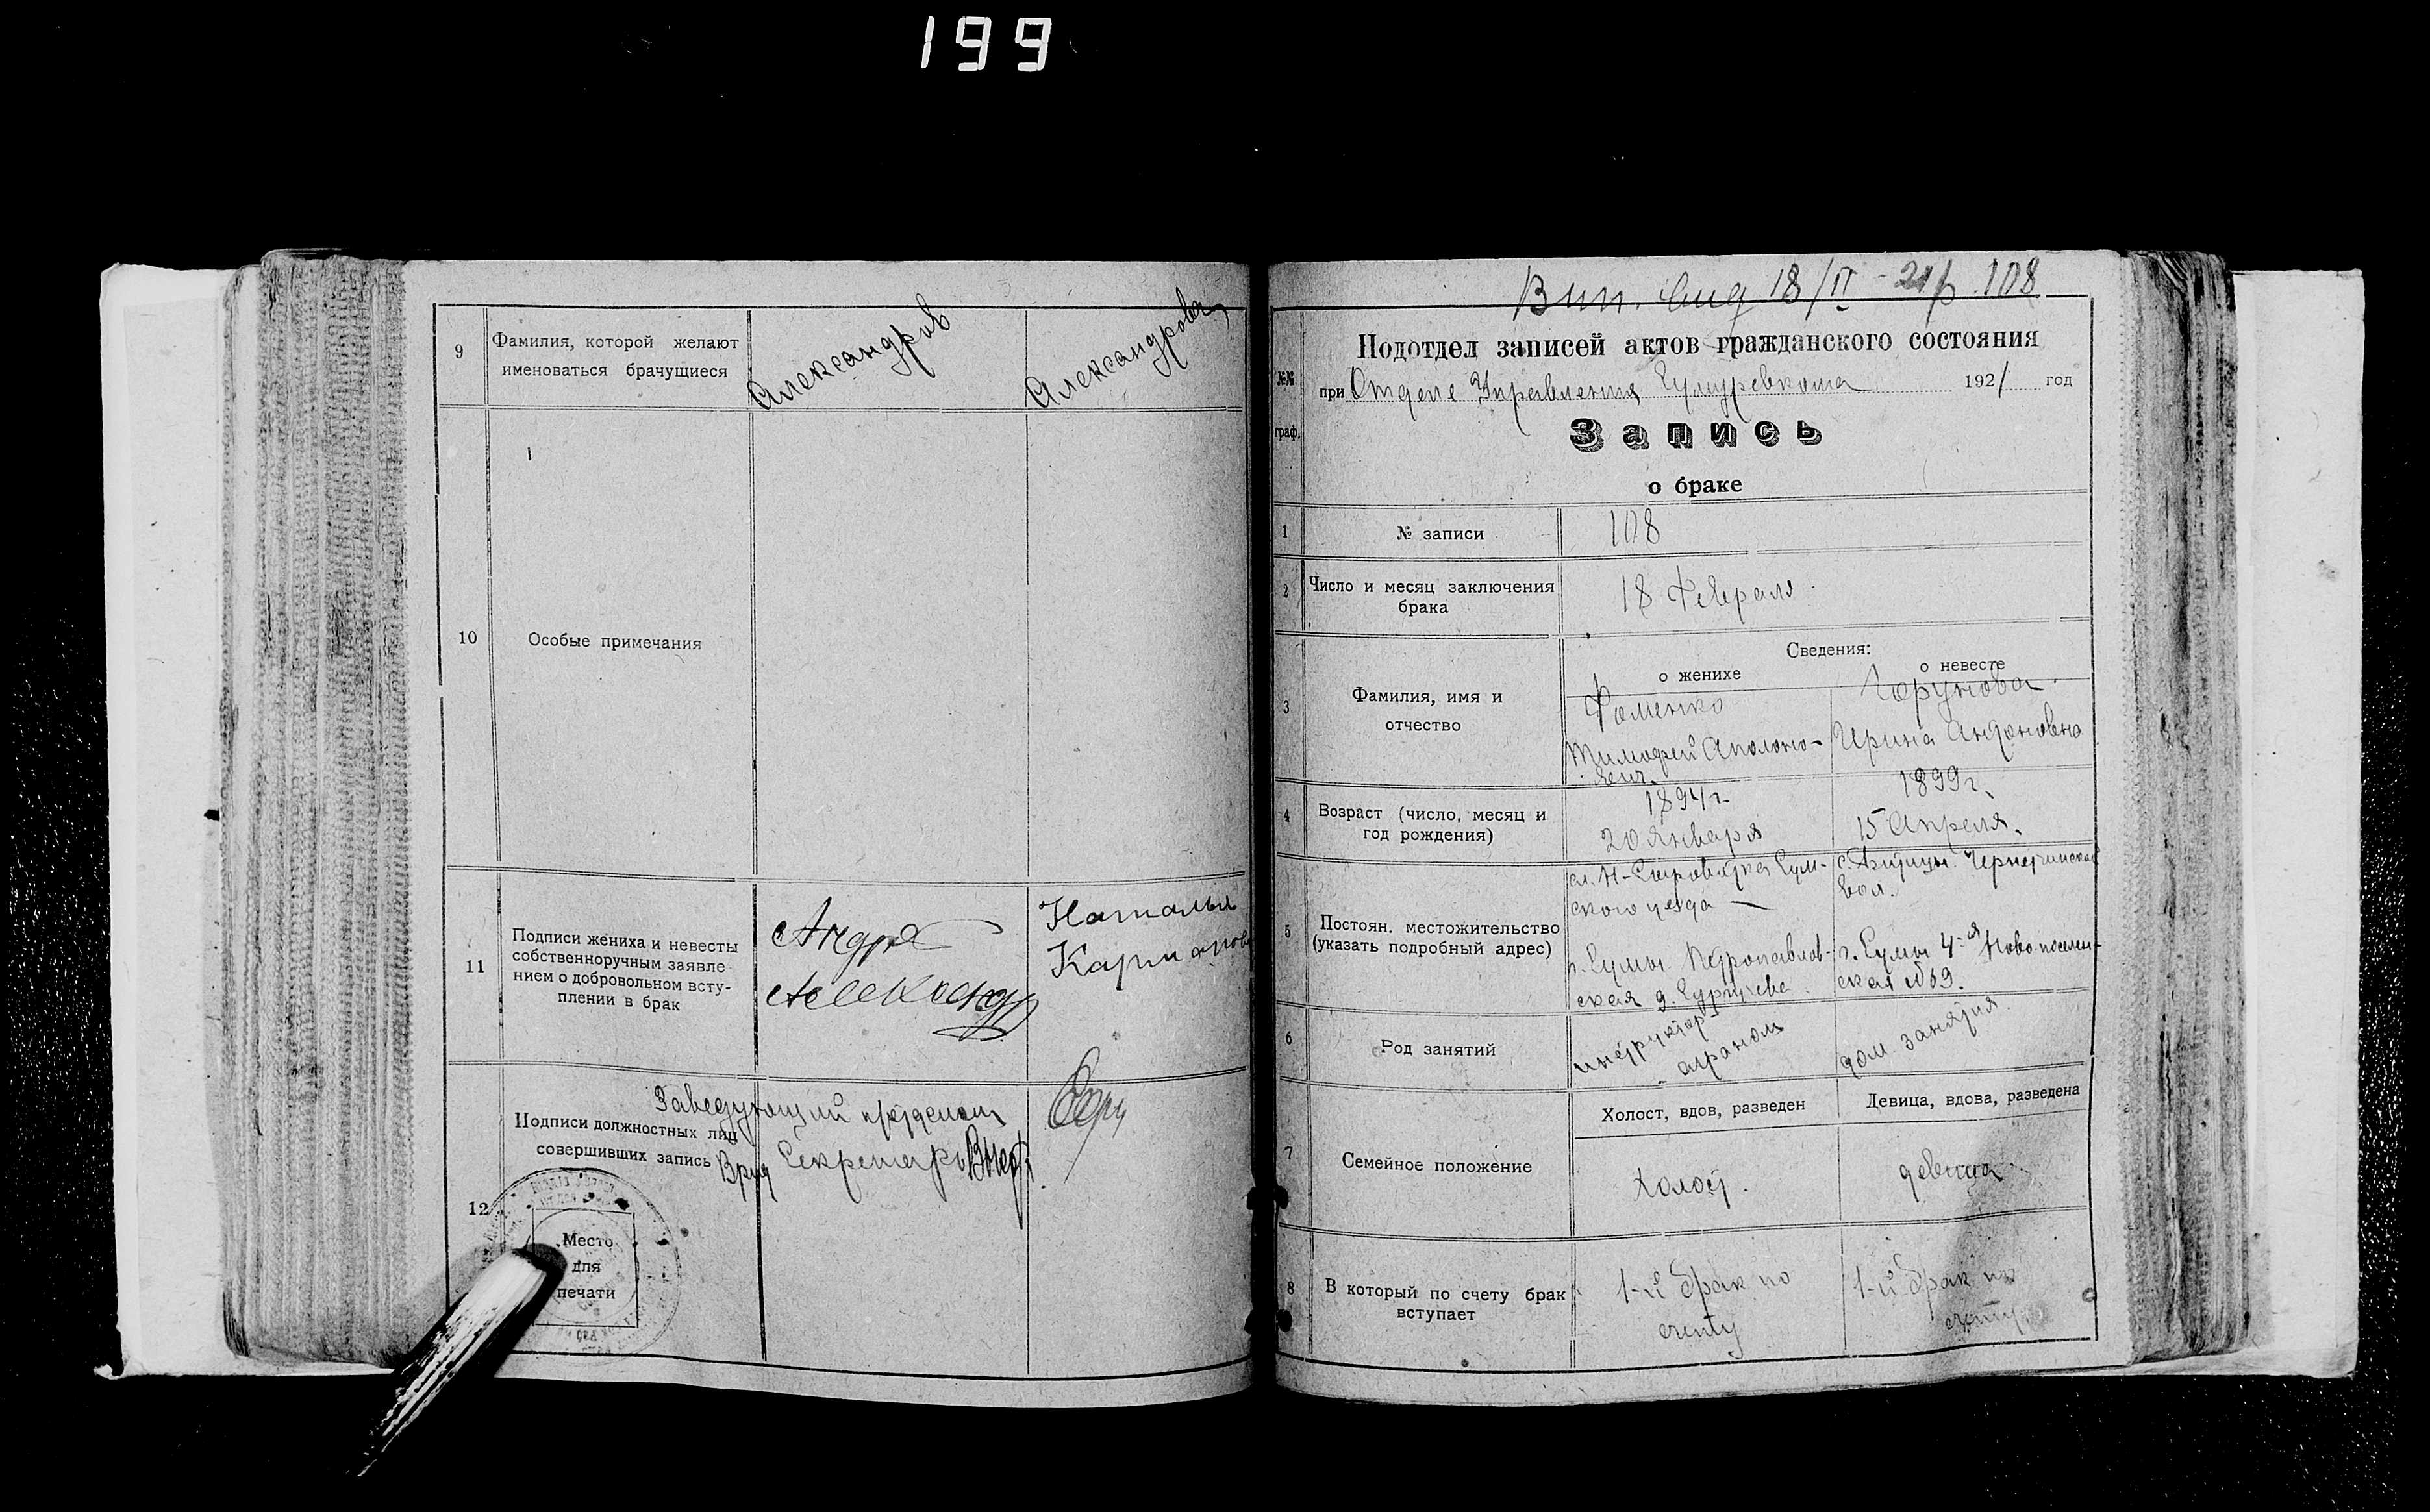 199
9
Фамилия, которой желают
именоваться брачущиеся
Александров
Александрова
10
Особые примечания
11
Подписи жениха и невесты
собственноручным заявле
нием о добровольном всту-
плении в брак
Наталья
12
Подписи должностных лиц
совершивших запись
Заведующий
Врид Секретарь
Место
для
печати
18/II - 21 р. 108
№№
граф.
Подотдел записей актов гражданского состояния
при Отделе Управления Сумуревкома 1921 год
Запись
о браке
1
№ записи
108
2
Число и месяц заключения
брака
18 Февраля
Сведения:
о женихе
о невесте
3
Фамилия, имя и
отчество
Фоменко
Тимофей Аполоно-
вич
Горунова
Ирина Антоновна
4
Возраст (число, месяц и
год рождения)
1894 г.
20 Января
1899 г.
15 Апреля.
5
Постоян. местожительство
(указать подробный адрес)
сл. Н-Сыроватка Сум-
ского уезда
г. Сумы Петропавлов-
ская д.
вол.
г. Сумы 4-ая Ново поселен-
ская
6
Род занятий
инструктор-
агроном
дом. занятия.
7
Семейное положение
Холост, вдов, разведен
Девица, вдова, разведена
Холост.
девица
8
В который по счету брак
вступает
1-й брак по
счету
1-й брак по
счету